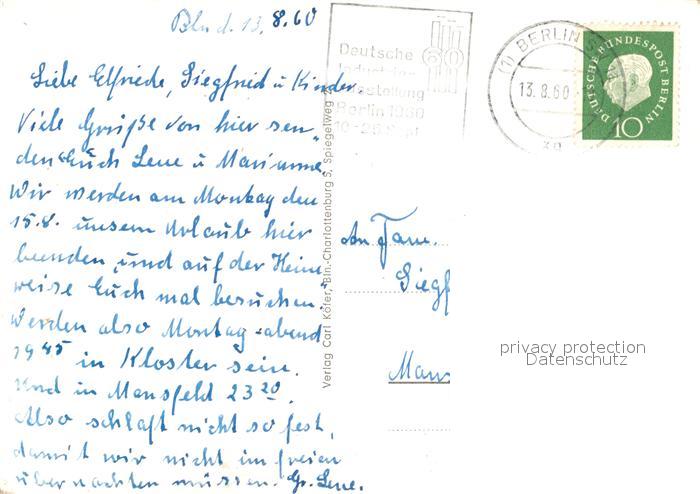 Bln d. 13.8.60
Liebe Elfriede, Siegfried u Kinder
Viele Grüße von hier sen-
den Euch Lene u Marianne.
Wir werden am Montag den
15.8. unsern Urlaub hier
beenden, und auf der Heim-
reise Euch mal besuchen.
Werden also Montag-abend
19 45 in Kloster sein.
Und in Mansfeld 23 20.
Also schlaft nicht so fest,
damit wir nicht im freien
übernachten müssen. Gr. Lene.
Verlag Carl Köfer, Bln.-Charlottenburg 5, Spiegelweg
Deutsche
Industrie
Ausstellung
Berlin 1960
10-25 Sept
(1) BERLIN
13.8.60
DEUTSCHE BUNDESPOST BERLIN
10
An Fam.
Siegf
Mans
privacy protection
Datenschutz